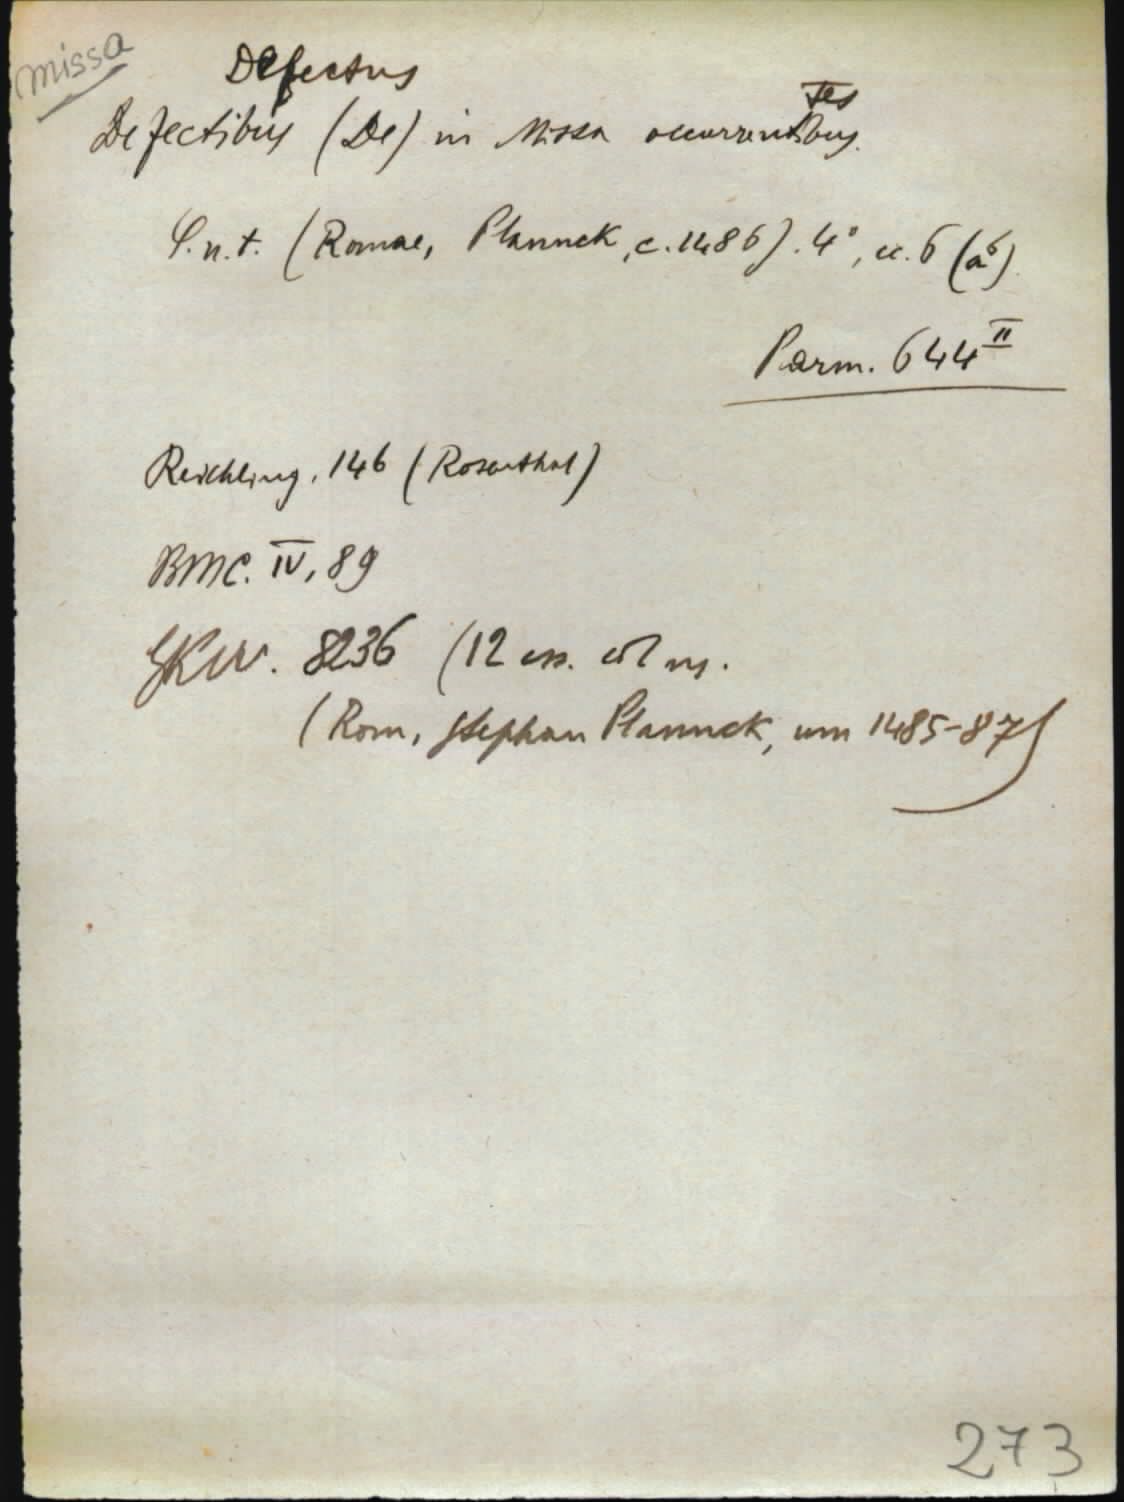 missa
Defectus
tes
Defectibus (De) in Missa occurrentibus.
S.n.t. (Romae, Plannck, c. 1486). 4°, cc. 6 (a⁶)
Parm. 644 II
Reichling, 146 (Rosenthal)
BMC. IV, 89
GKW. 8236 (12 es. col ns.
(Rom, Stephan Plannck, um 1485-87)
273